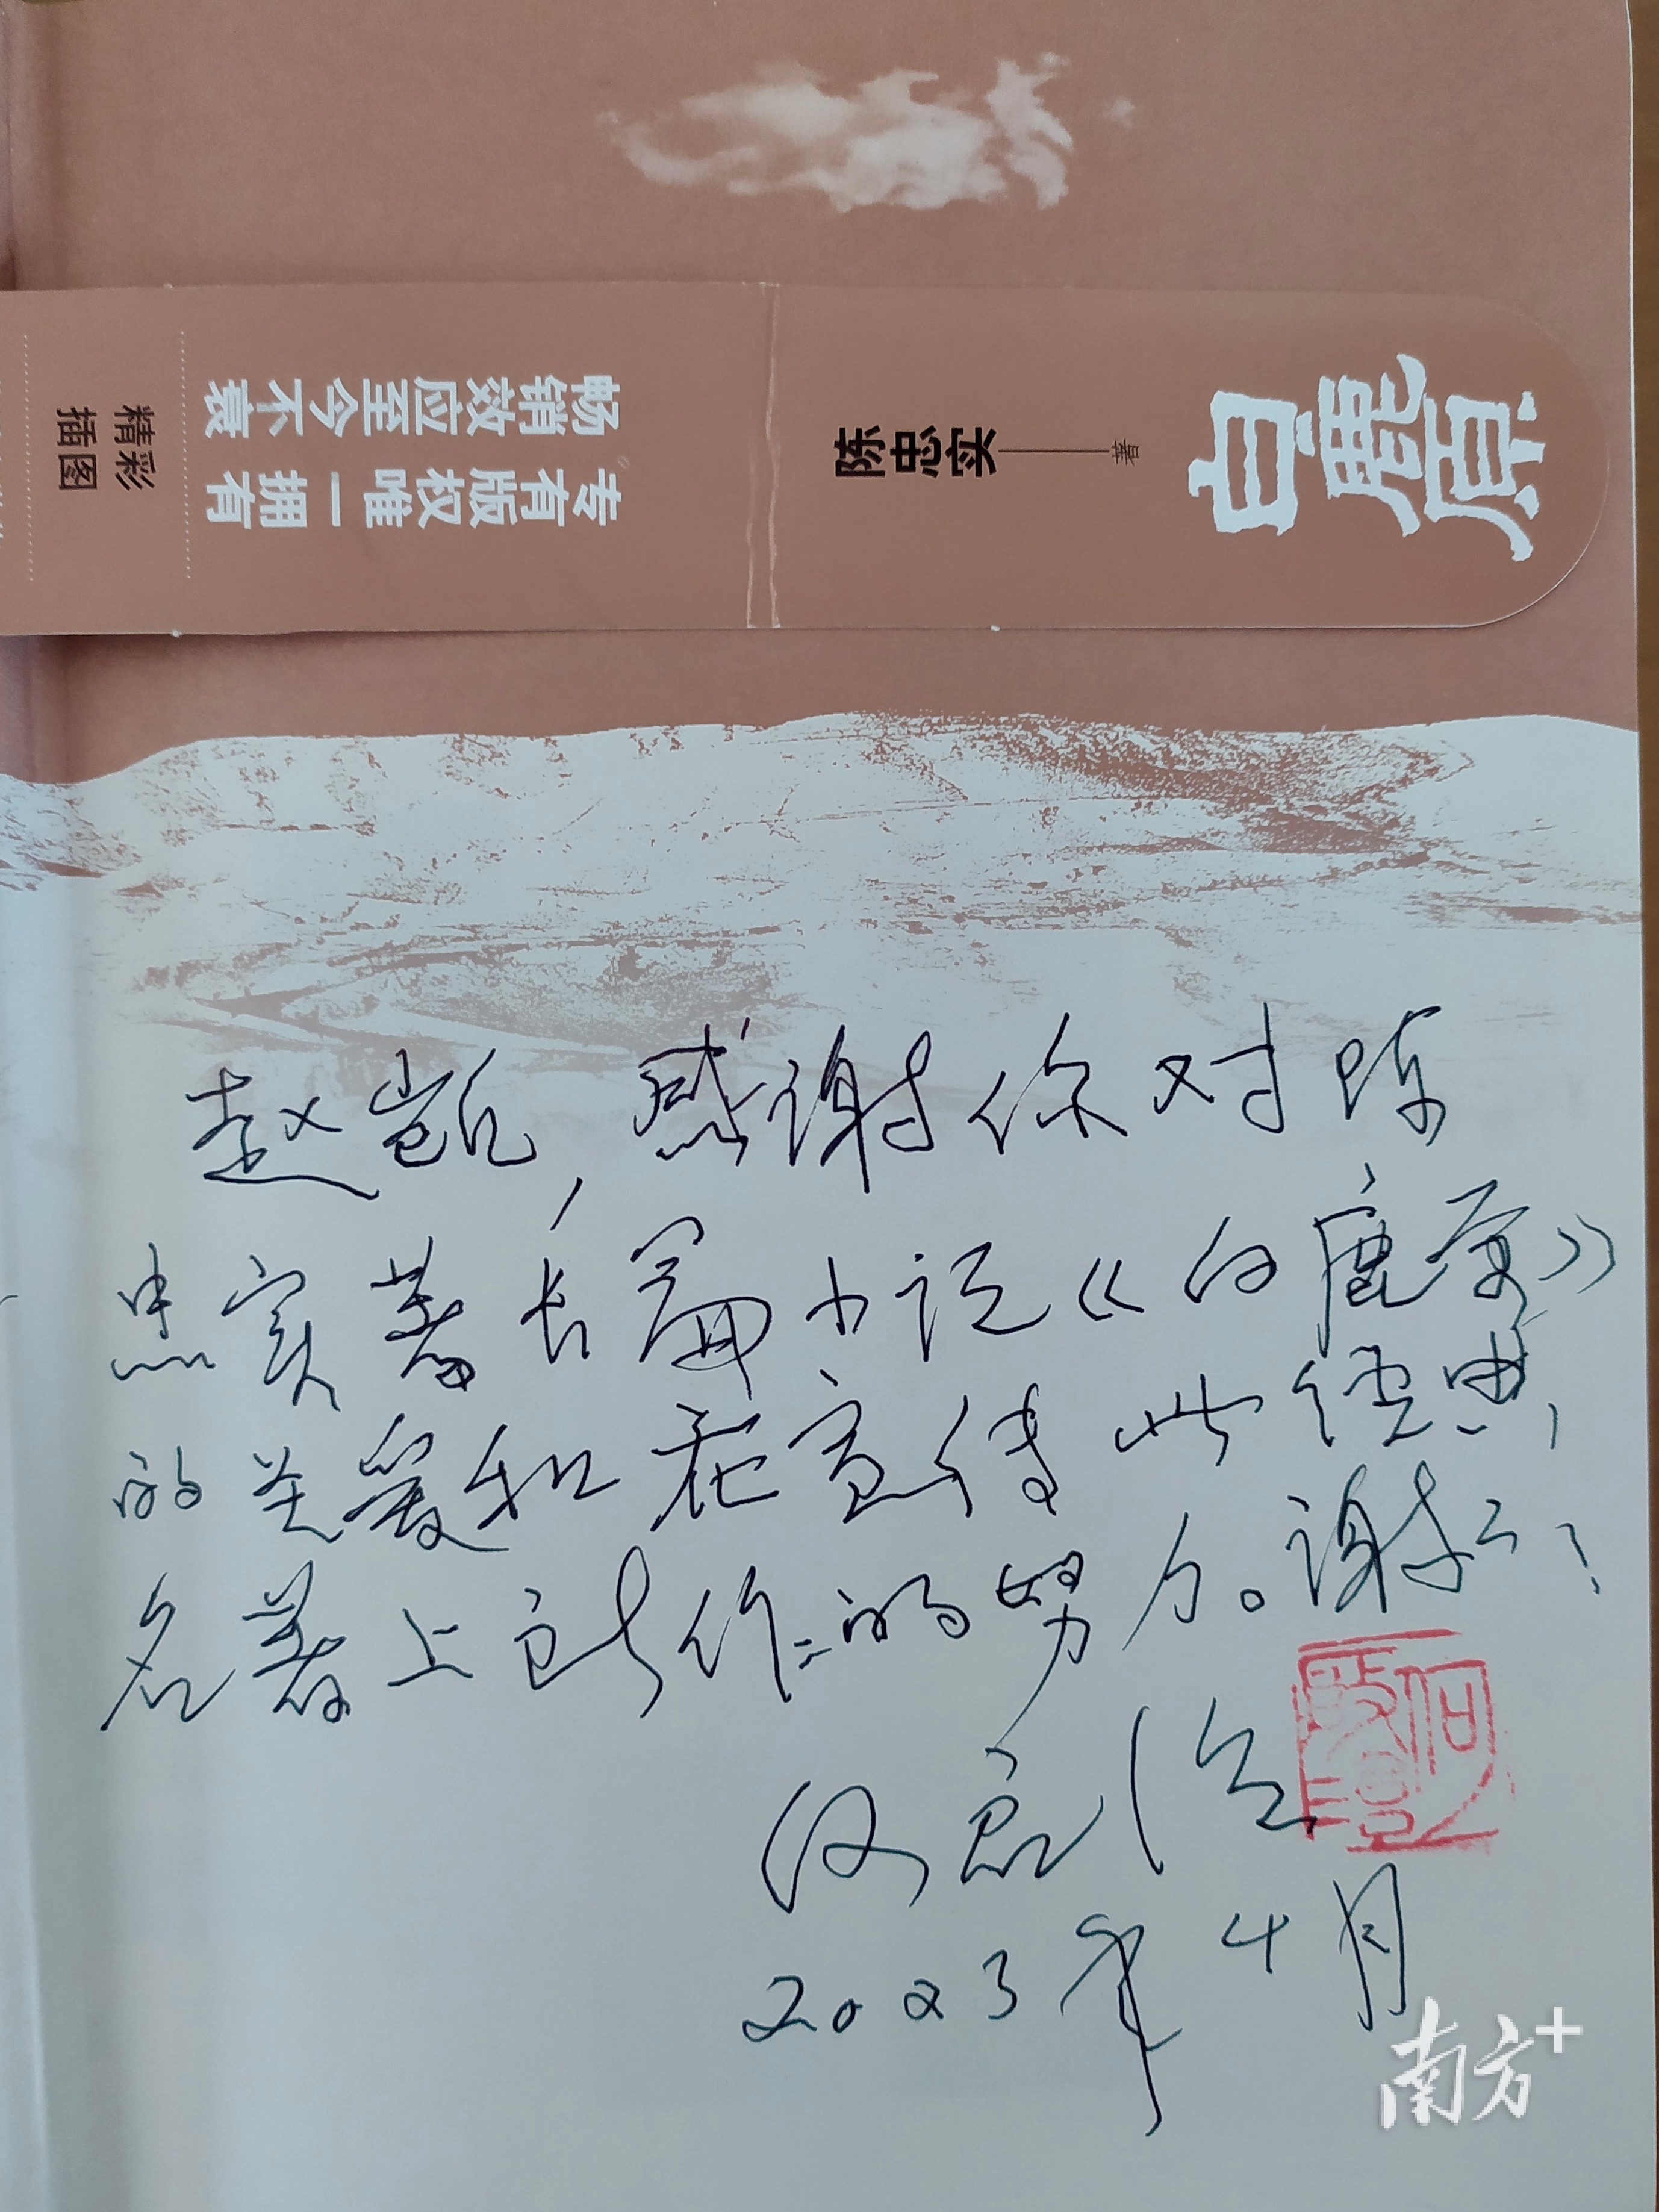 白鹿原
陈忠实
著
畅销效应至今不衰
专有版权唯一拥有
精彩
插图
赵凯，感谢你对陈
忠实著长篇小说《白鹿原》
的关爱和在宣传此经典
名著上所作的努力。谢谢！
何启治
2023年4月
何启治
南方+